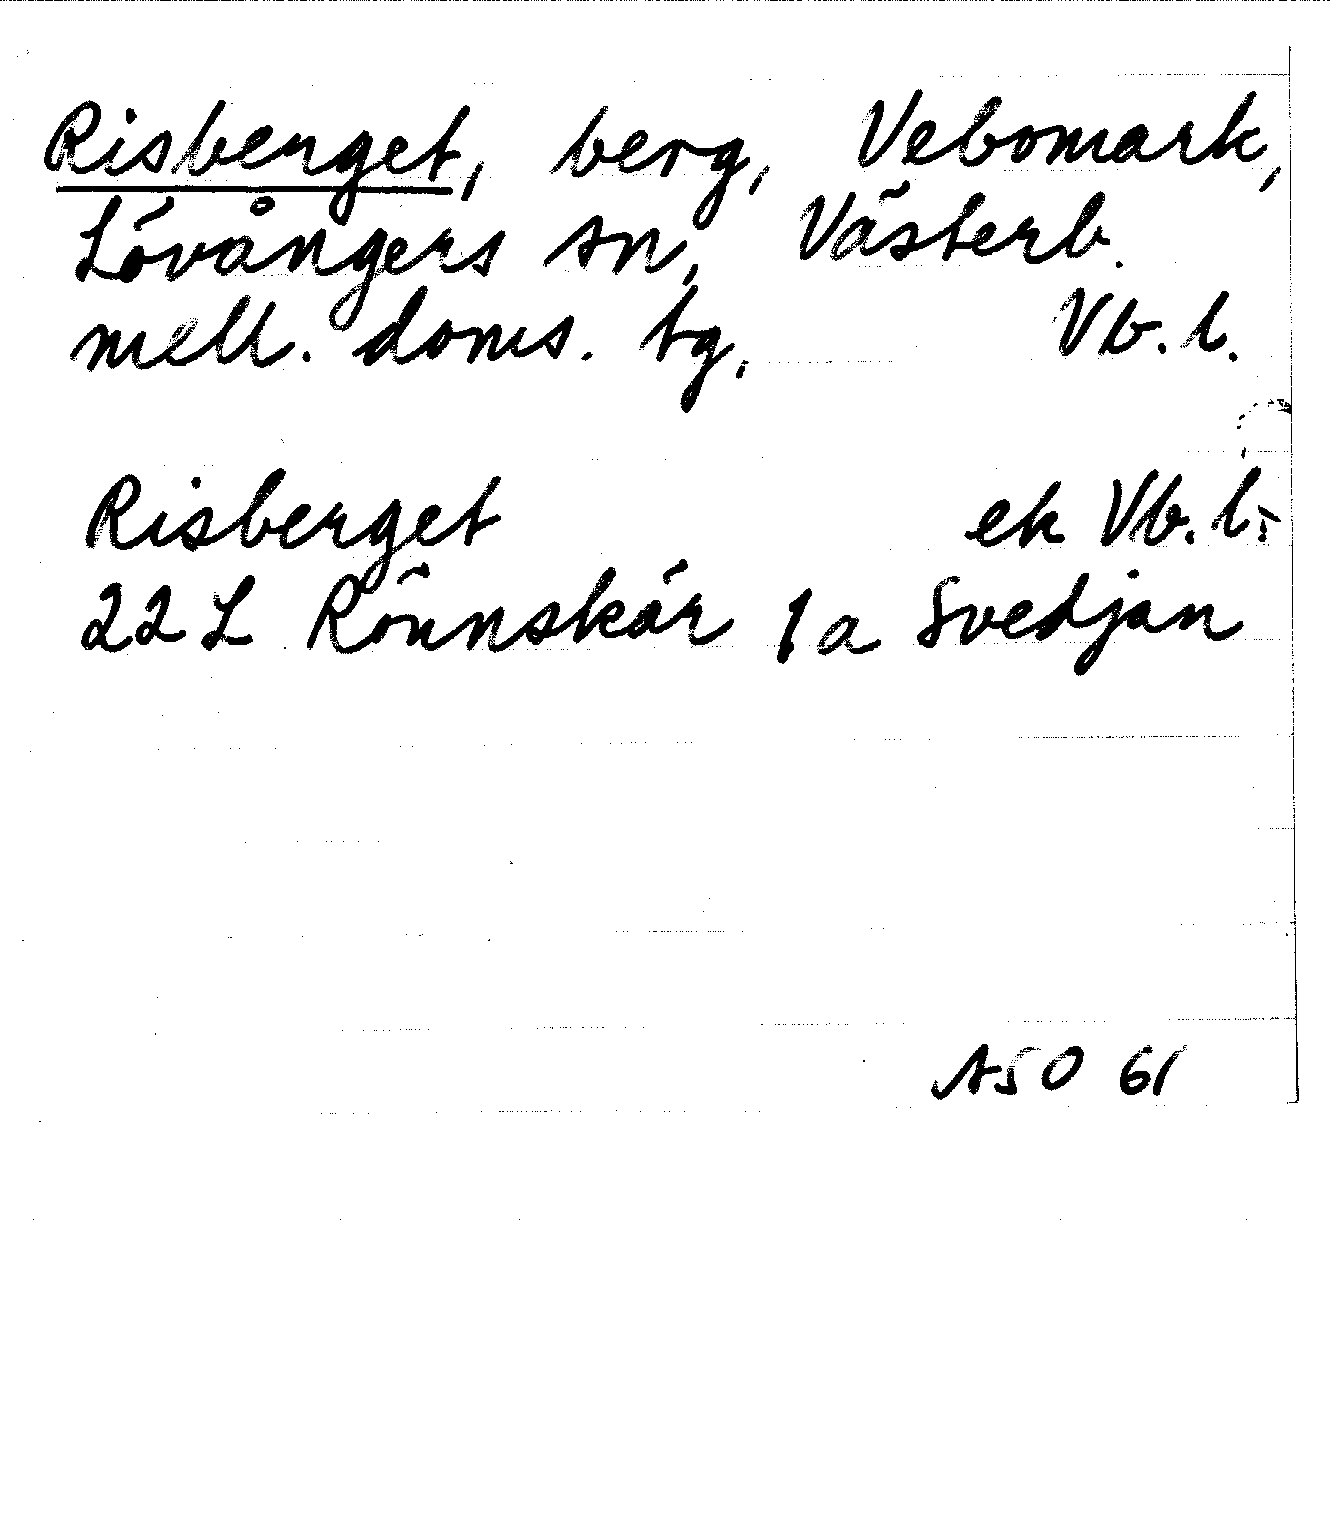 Risberget, berg, Vebomark,
Lövångers sn, Västerb.
mell. doms. tg, Vb. l.
Risberget ek Vb. l.
22 L Rönnskär 1 a Svedjan
ASO 61